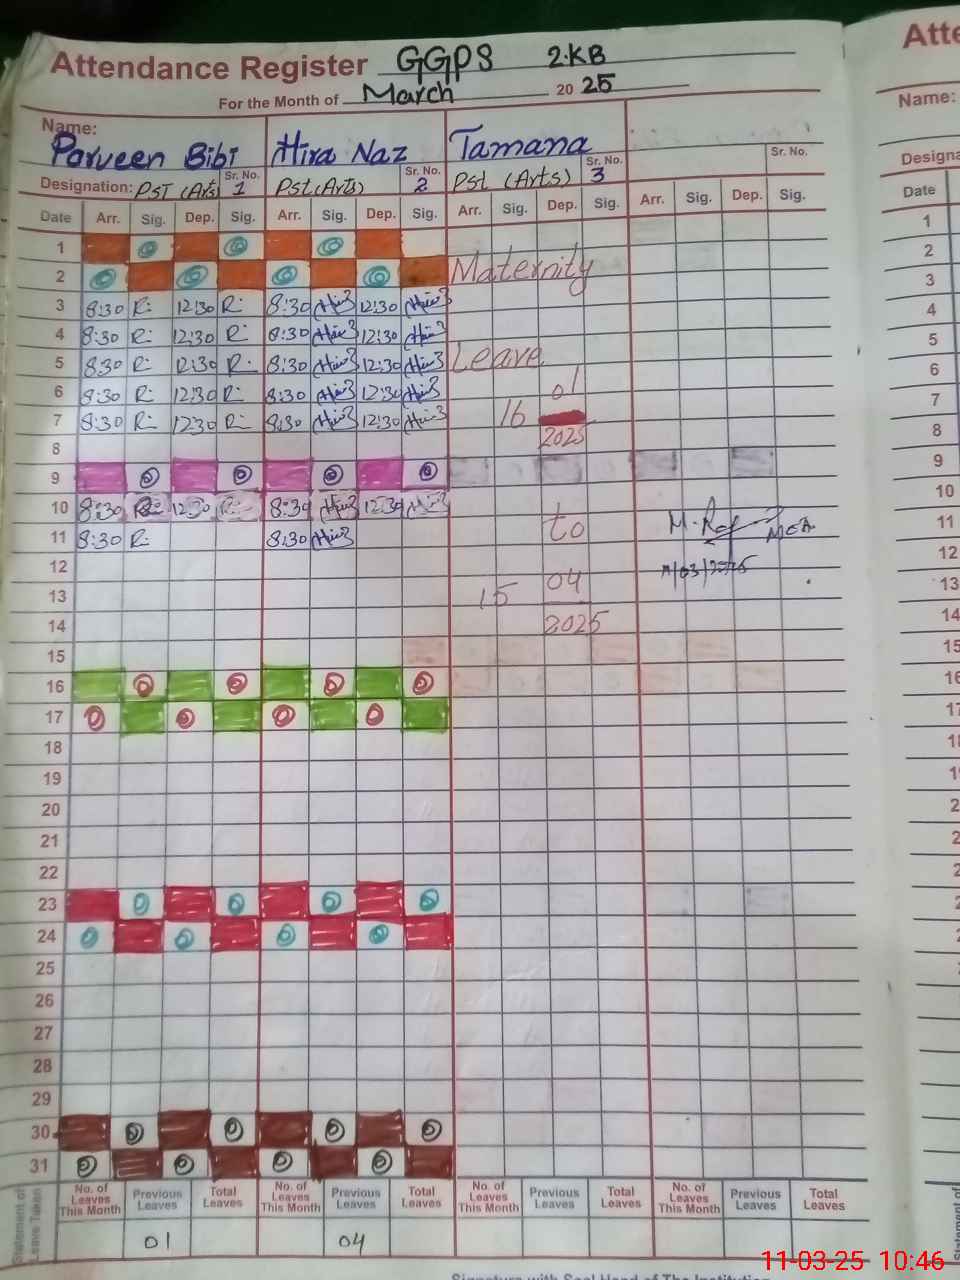 Attendance Register GGPS 2.KB
For the Month of March 2025
Name: Parveen Bibi Hira Naz Tamana
Designation: PST (Arts) Sr. No. 1 Pst (Arts) Sr. No. 2 Pst (Arts) Sr. No. 3 Sr. No.
Date Arr. Sig. Dep. Sig. Arr. Sig. Dep. Sig. Arr. Sig. Dep. Sig. Arr. Sig. Dep. Sig.
1
2 Maternity
3 8:30 R: 12:30 R: 8:30 12:30
4 8:30 R: 12:30 R: 8:30 12:30
5 8:30 R: 12:30 R: 8:30 12:30 Leave
6 8:30 R: 12:30 R: 8:30 12:30 01
7 8:30 R: 12:30 R: 8:30 12:30 16
8 2025
9
10 8:30 R: 12:30 R: 8:30 12:30
11 8:30 R: 8:30 to MEA
12 11/03/2025
13 15 04
14 2025
15
16
17
18
19
20
21
22
23
24
25
26
27
28
29
30
31
Statement of Leave Taken No. of Leaves This Month Previous Leaves Total Leaves No. of Leaves This Month Previous Leaves Total Leaves No. of Leaves This Month Previous Leaves Total Leaves No. of Leaves This Month Previous Leaves Total Leaves
01 04
11-03-25 10:46
Signature with Seal Head of The Institution
Atte
Name:
Designa
Date
1
2
3
4
5
6
7
8
9
10
11
12
13
14
15
16
17